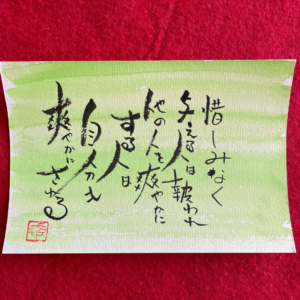 惜しみなく
与える人は報われ
他の人を爽やかに
する人は
自分も
爽やかに
される